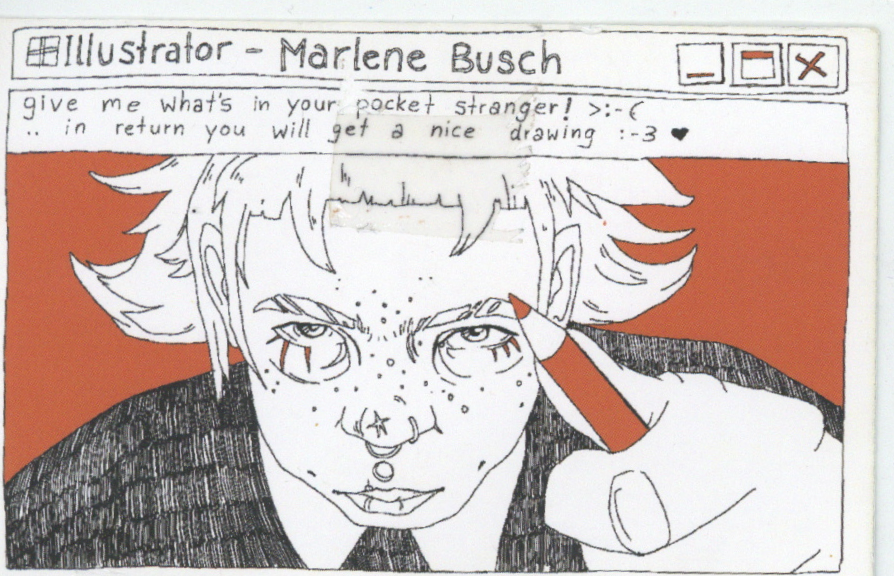 Illustrator - Marlene Busch
give me what's in your pocket stranger! >:-(
.. in return you will get a nice drawing :-3 ♥